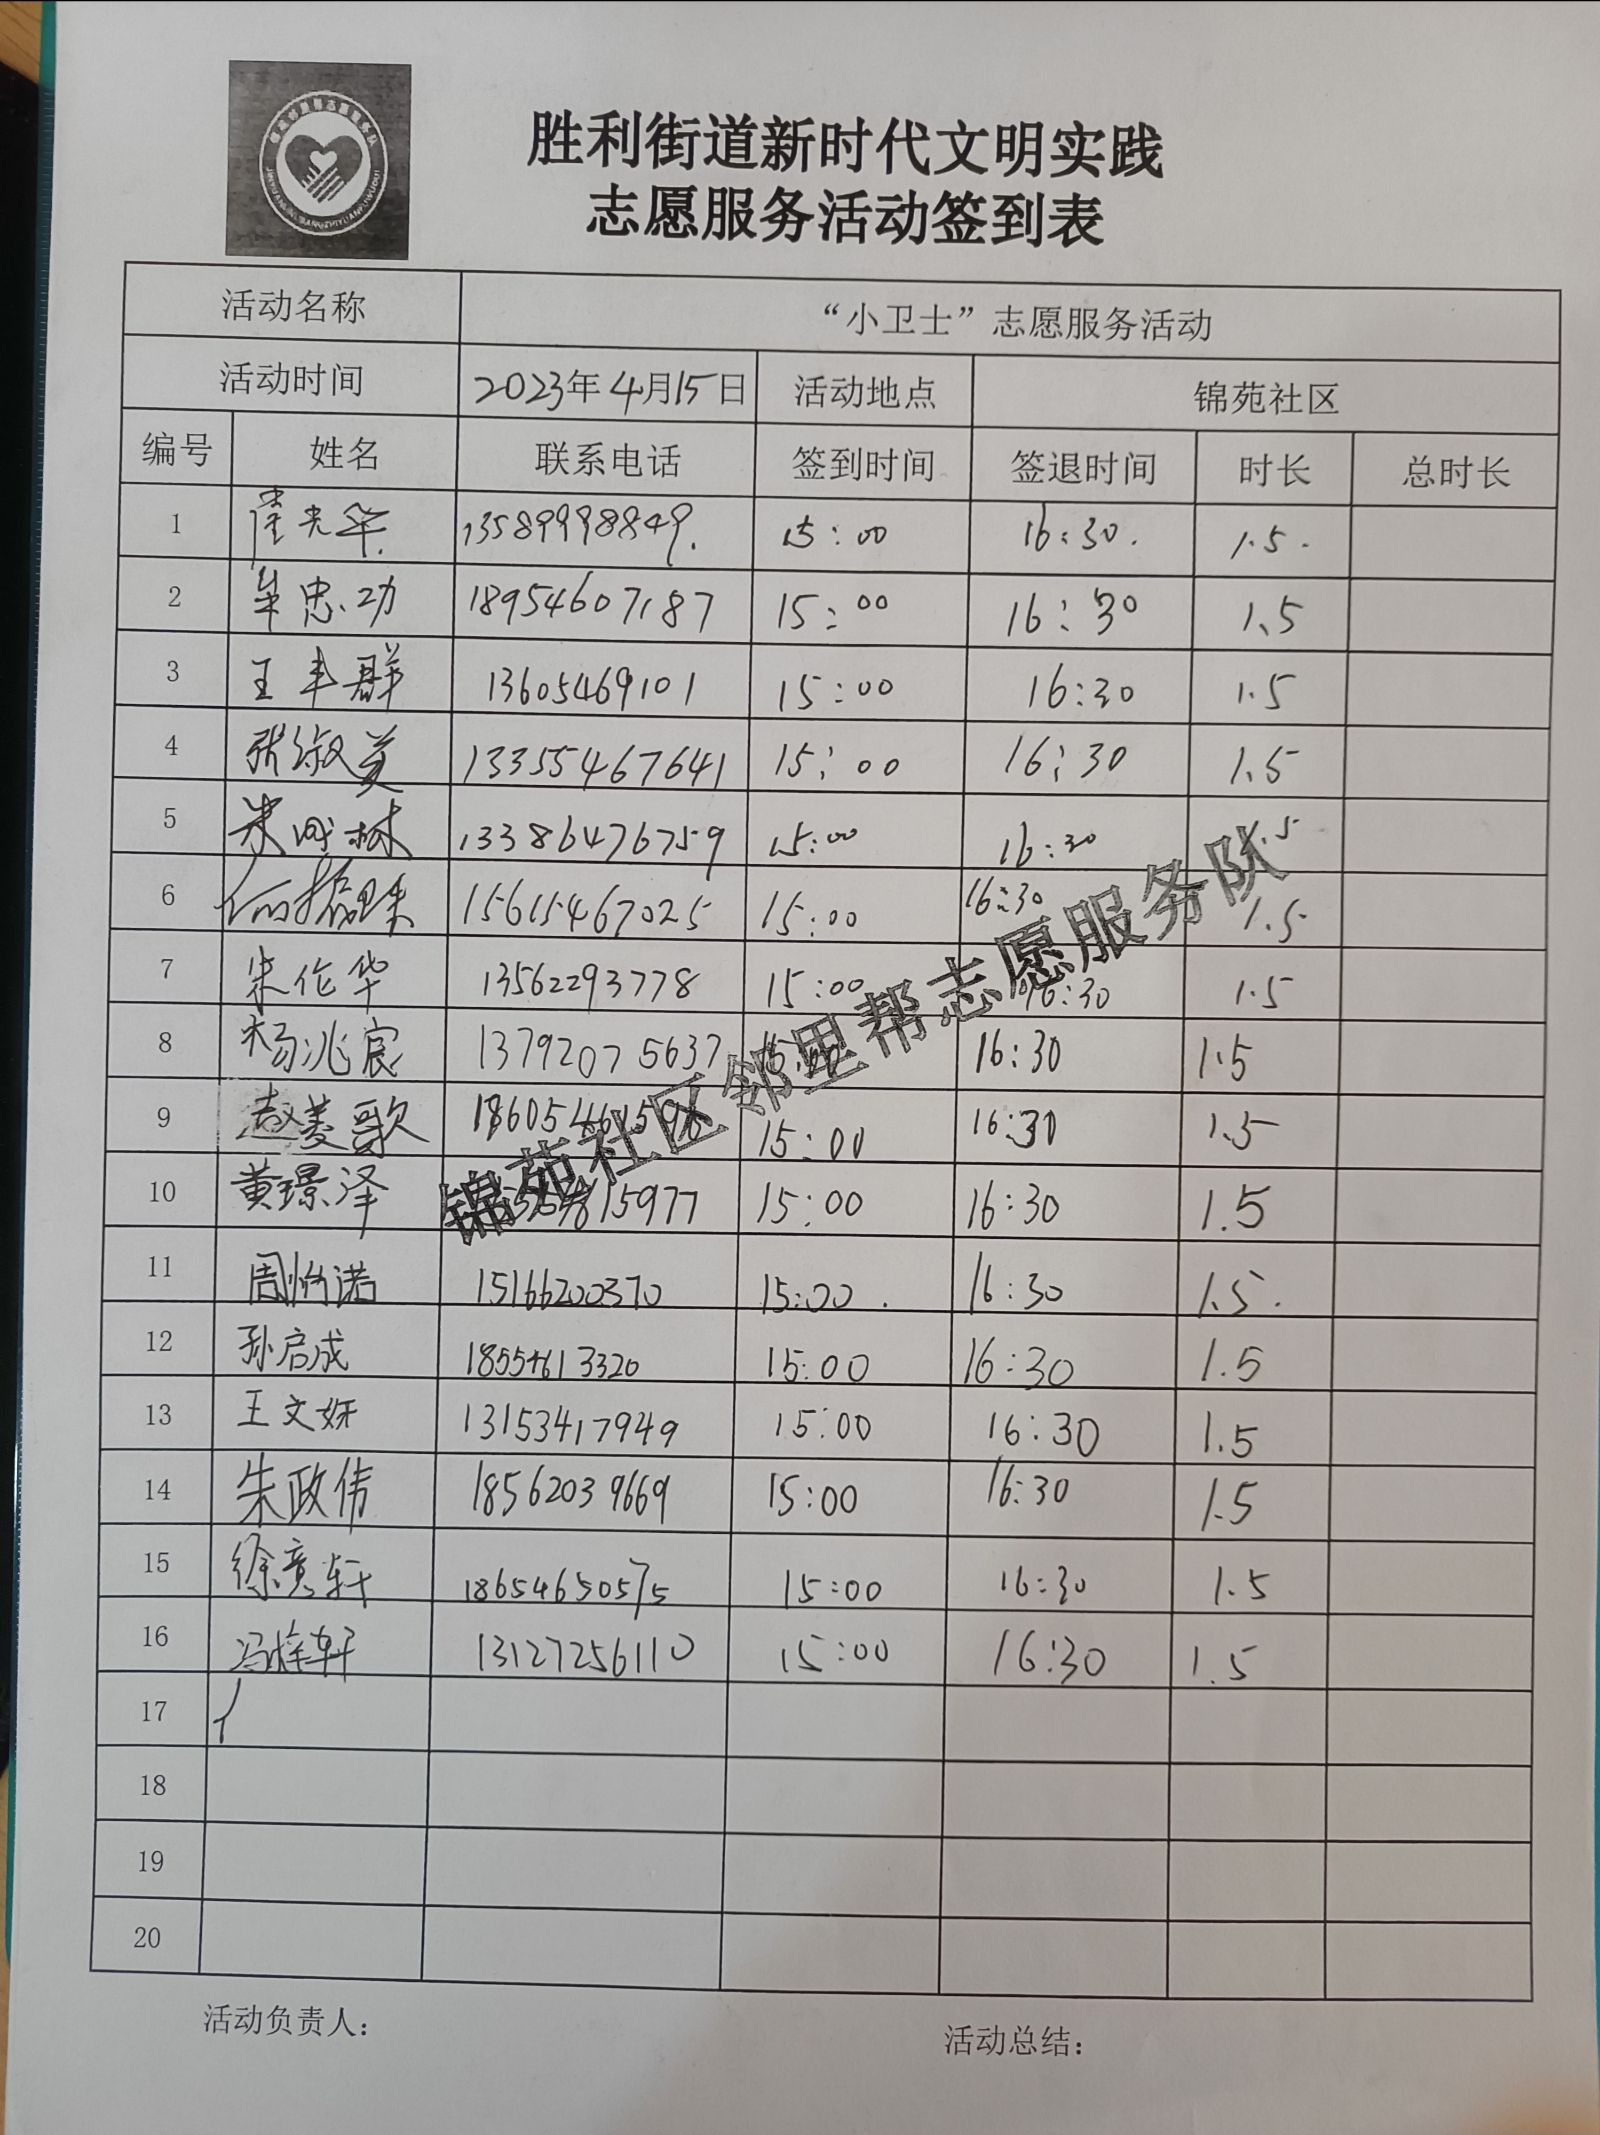 胜利街道新时代文明实践
志愿服务活动签到表
活动名称 “小卫士”志愿服务活动
活动时间 2023年4月15日 活动地点 锦苑社区
编号 姓名 联系电话 签到时间 签退时间 时长 总时长
1 崔光华 13589998849. 15:00 16:30. 1.5.
2 牟忠功 18954607187 15:00 16:30 1.5
3 王丰群 13605469101 15:00 16:30 1.5
4 张淑英 13355467641 15:00 16:30 1.5
5 13386476759 15:00 16:30 1.5
6 15615467025 15:00 16:30 1.5
7 朱作华 13562293778 15:00 16:30 1.5
8 杨兆宸 13792075637 16:30 1.5
9 赵美歌 15:00 16:30 1.5
10 黄璟泽 15:00 16:30 1.5
11 周怡诺 15166200370 15:00. 16:30 1.5.
12 孙启成 18554613320 15:00 16:30 1.5
13 王文妍 13153417949 15:00 16:30 1.5
14 朱政伟 18562039669 15:00 16:30 1.5
15 徐意轩 18654650575 15:00 16:30 1.5
16 冯梓轩 13127256110 15:00 16:30 1.5
17
18
19
20
锦苑社区邻里帮志愿服务队
活动负责人： 活动总结：